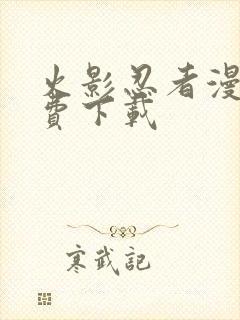 火影忍者漫
費下載
寒武記